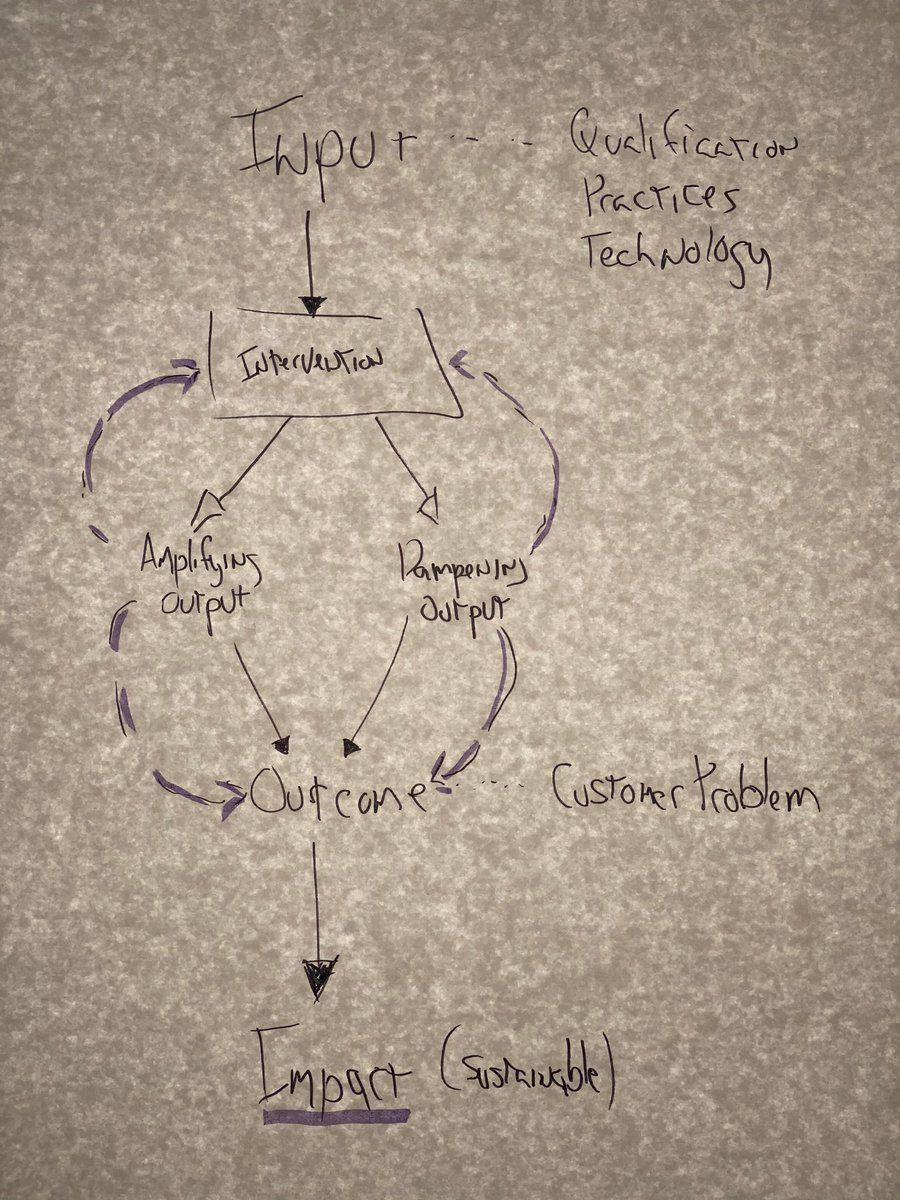 Input ---- Qualification
Practices
Technology
Intervention
Amplifying
output
Dampening
output
Outcome ---- Customer Problem
Impact (sustainable)